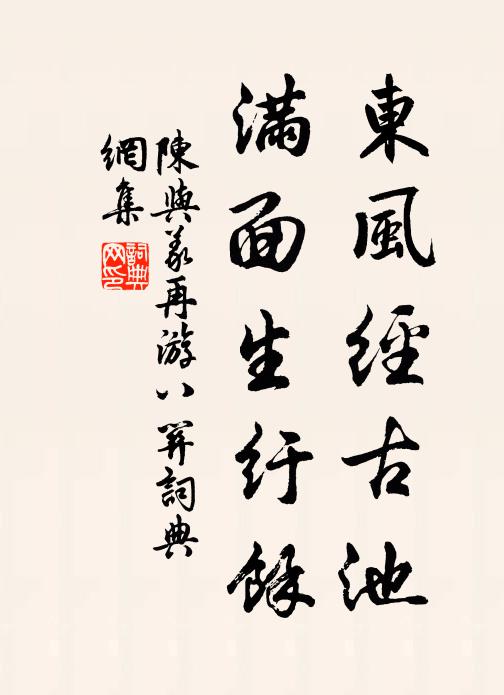 東風經古池
滿面生紆餘
陳與義再游八關詞典
網集
詞典
网印